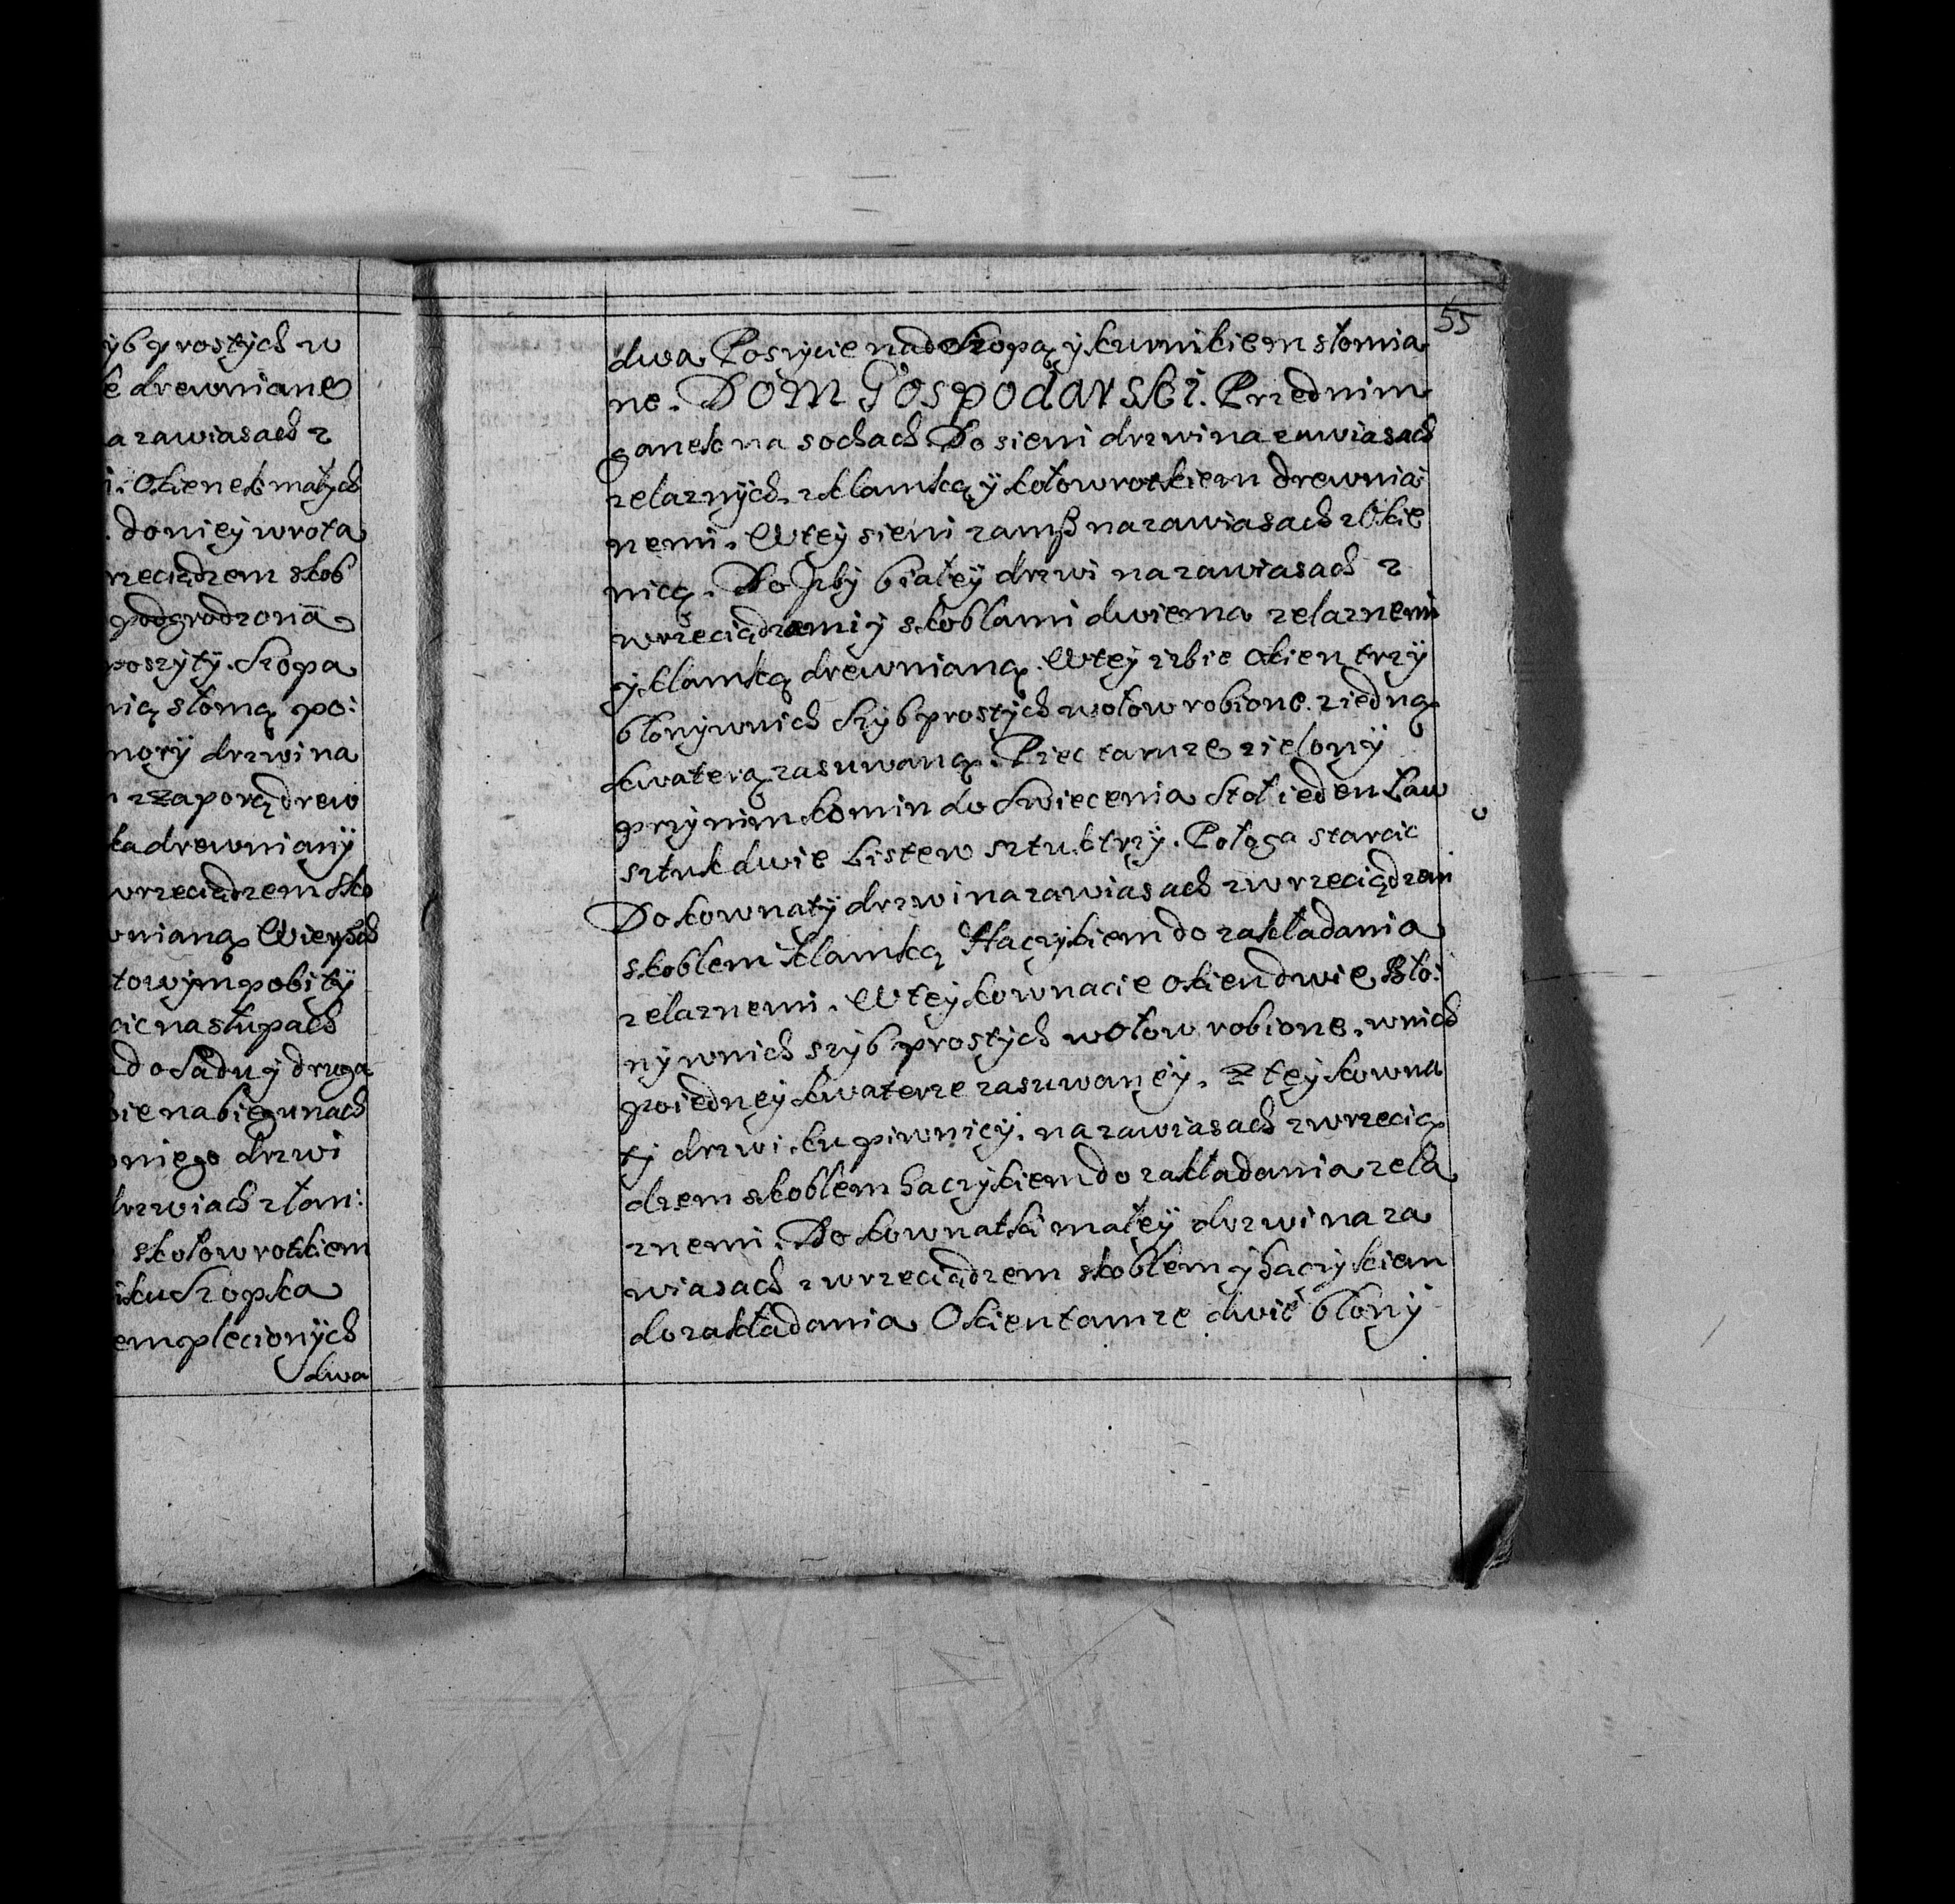 ÿb prostÿch w
e drewniane
a zawiasach z
i. Okienek małÿch
. do nieÿ wrota
rzeciądzem skob
podgrodzona
poszÿtÿ. Szopa
nią słomą po:
morÿ drzwi na
z zaporą drew
ka drewnianÿ
wrzeciądzem sko
wnianą Wierzch
towÿm pobitÿ
cic na słupach
do Sadu ÿ druga
bie na biegunach
niego drzwi
drzwiach z łan:
skołowrotkiem
iku Szopka
em plecionÿch
dwa
55
dwa Poszycie nad Szopą ÿ kurnikiem słomia
ne. Dom Gospodarski. Przed nim
ganek na sochach. Do sieni drzwi na zawiasach
zelaznÿch, z klamką ÿ kołowrotkiem drewnia:
nemi. W teÿ sieni zamß na zawiasach z Okie
nicą. Do Jzbÿ białeÿ drzwi na zawiasach z
wrzeciądzami ÿ skoblami dwiema zelaznemi
ÿ klamką drewnianą. W teÿ izbie Okien trzÿ
błonÿ w nich Szÿb prostÿch w ołow robione. z iedną
kwaterą zasuwaną. Piec tamze zielonÿ
przÿ nim komin do Swiecenia Stoł ieden Law
sztuk dwie Listew sztuk trzÿ. Połoga z tarcic
Do kownatÿ drzwi na zawiasach z wrzeciądzem
skoblem klamką Haczÿkiem do zakładania
zelaznemi. W teÿ kownacie okien dwie, Bło:
nÿ w nich szÿb prostÿch w ołow robione, w nich
po iedneÿ kwaterze zasuwaneÿ. Z teÿ kowna
tÿ drzwi ku piwniceÿ. na zawiasach z wrzecią
dzem skoblem haczÿkiem do zakładania zela
znemi. Do kownatki małeÿ drzwi na za
wiasach z wrzeciądzem skoblem ÿ haczÿkiem
do zakładania Okien tamze dwie błonÿ